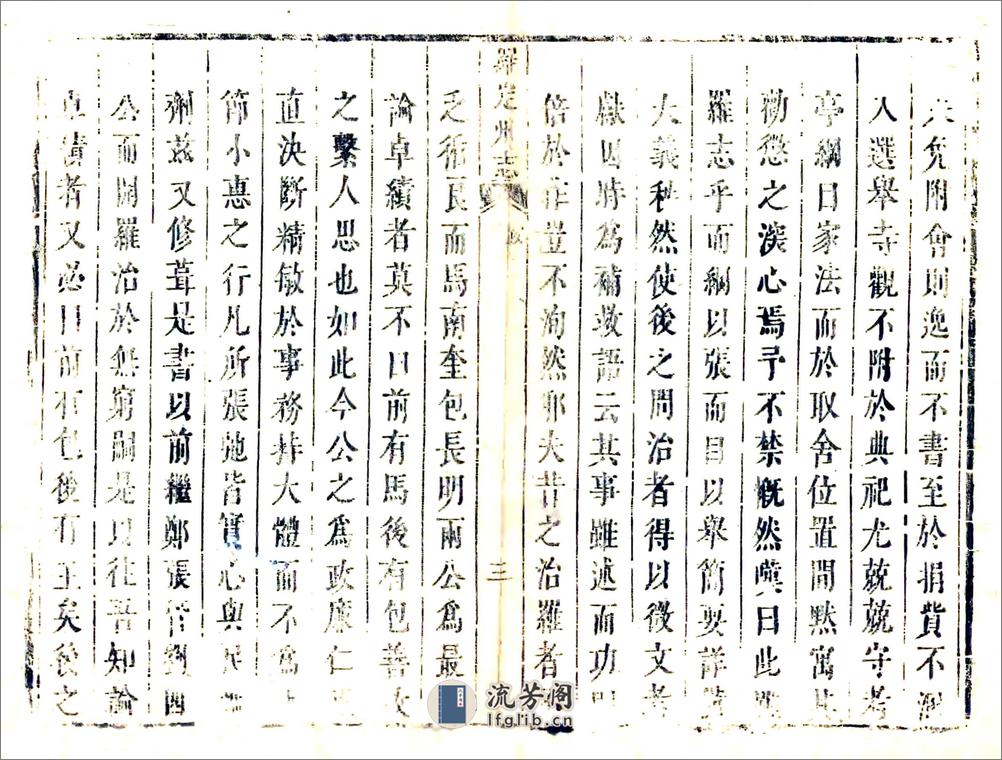 免附會則逸而不書至於捐貲不
入選舉寺觀不附於典祀尤兢兢守考
亭綱目家法而於取舍位置間默寓
勸懲之深心焉予不禁慨然嘆曰此
羅志乎而綱以張而目以舉簡要詳
大義秩然使後之問治者得以徵文考
獻因時為補救語云其事雖述而功
倍於作豈不洵然耶夫昔之治羅者
羅定州志
三
乏循良而馬南奎包長明兩公為最
論卓績者莫不曰前有馬後有包善政
之繫人思也如此今公之為政廉仁
直決斷精敏於事務持大體而不為
節小惠之行凡所張弛皆實心與
劑茲又修葺是書以前繼鄭張
公而開羅治於無窮嗣是以往吾知論
卓績者又必曰前有包後有王矣後之
流芳阁
lfglib.cn